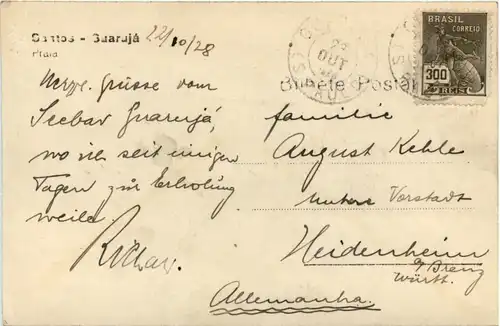 Santos - Guarujá 22/10/28
Praia
Bilhete Postal
BRASIL
CORREIO
300
REIS
OUT
Herzl. Grüsse vom
Seebad Guarujá,
wo ich seit einigen
Tagen zur Erholung
weile.
Richar.
Familie
August Kehle
Untere Vorstadt
Heidenheim
a/Brenz
Württ.
Allemanha.